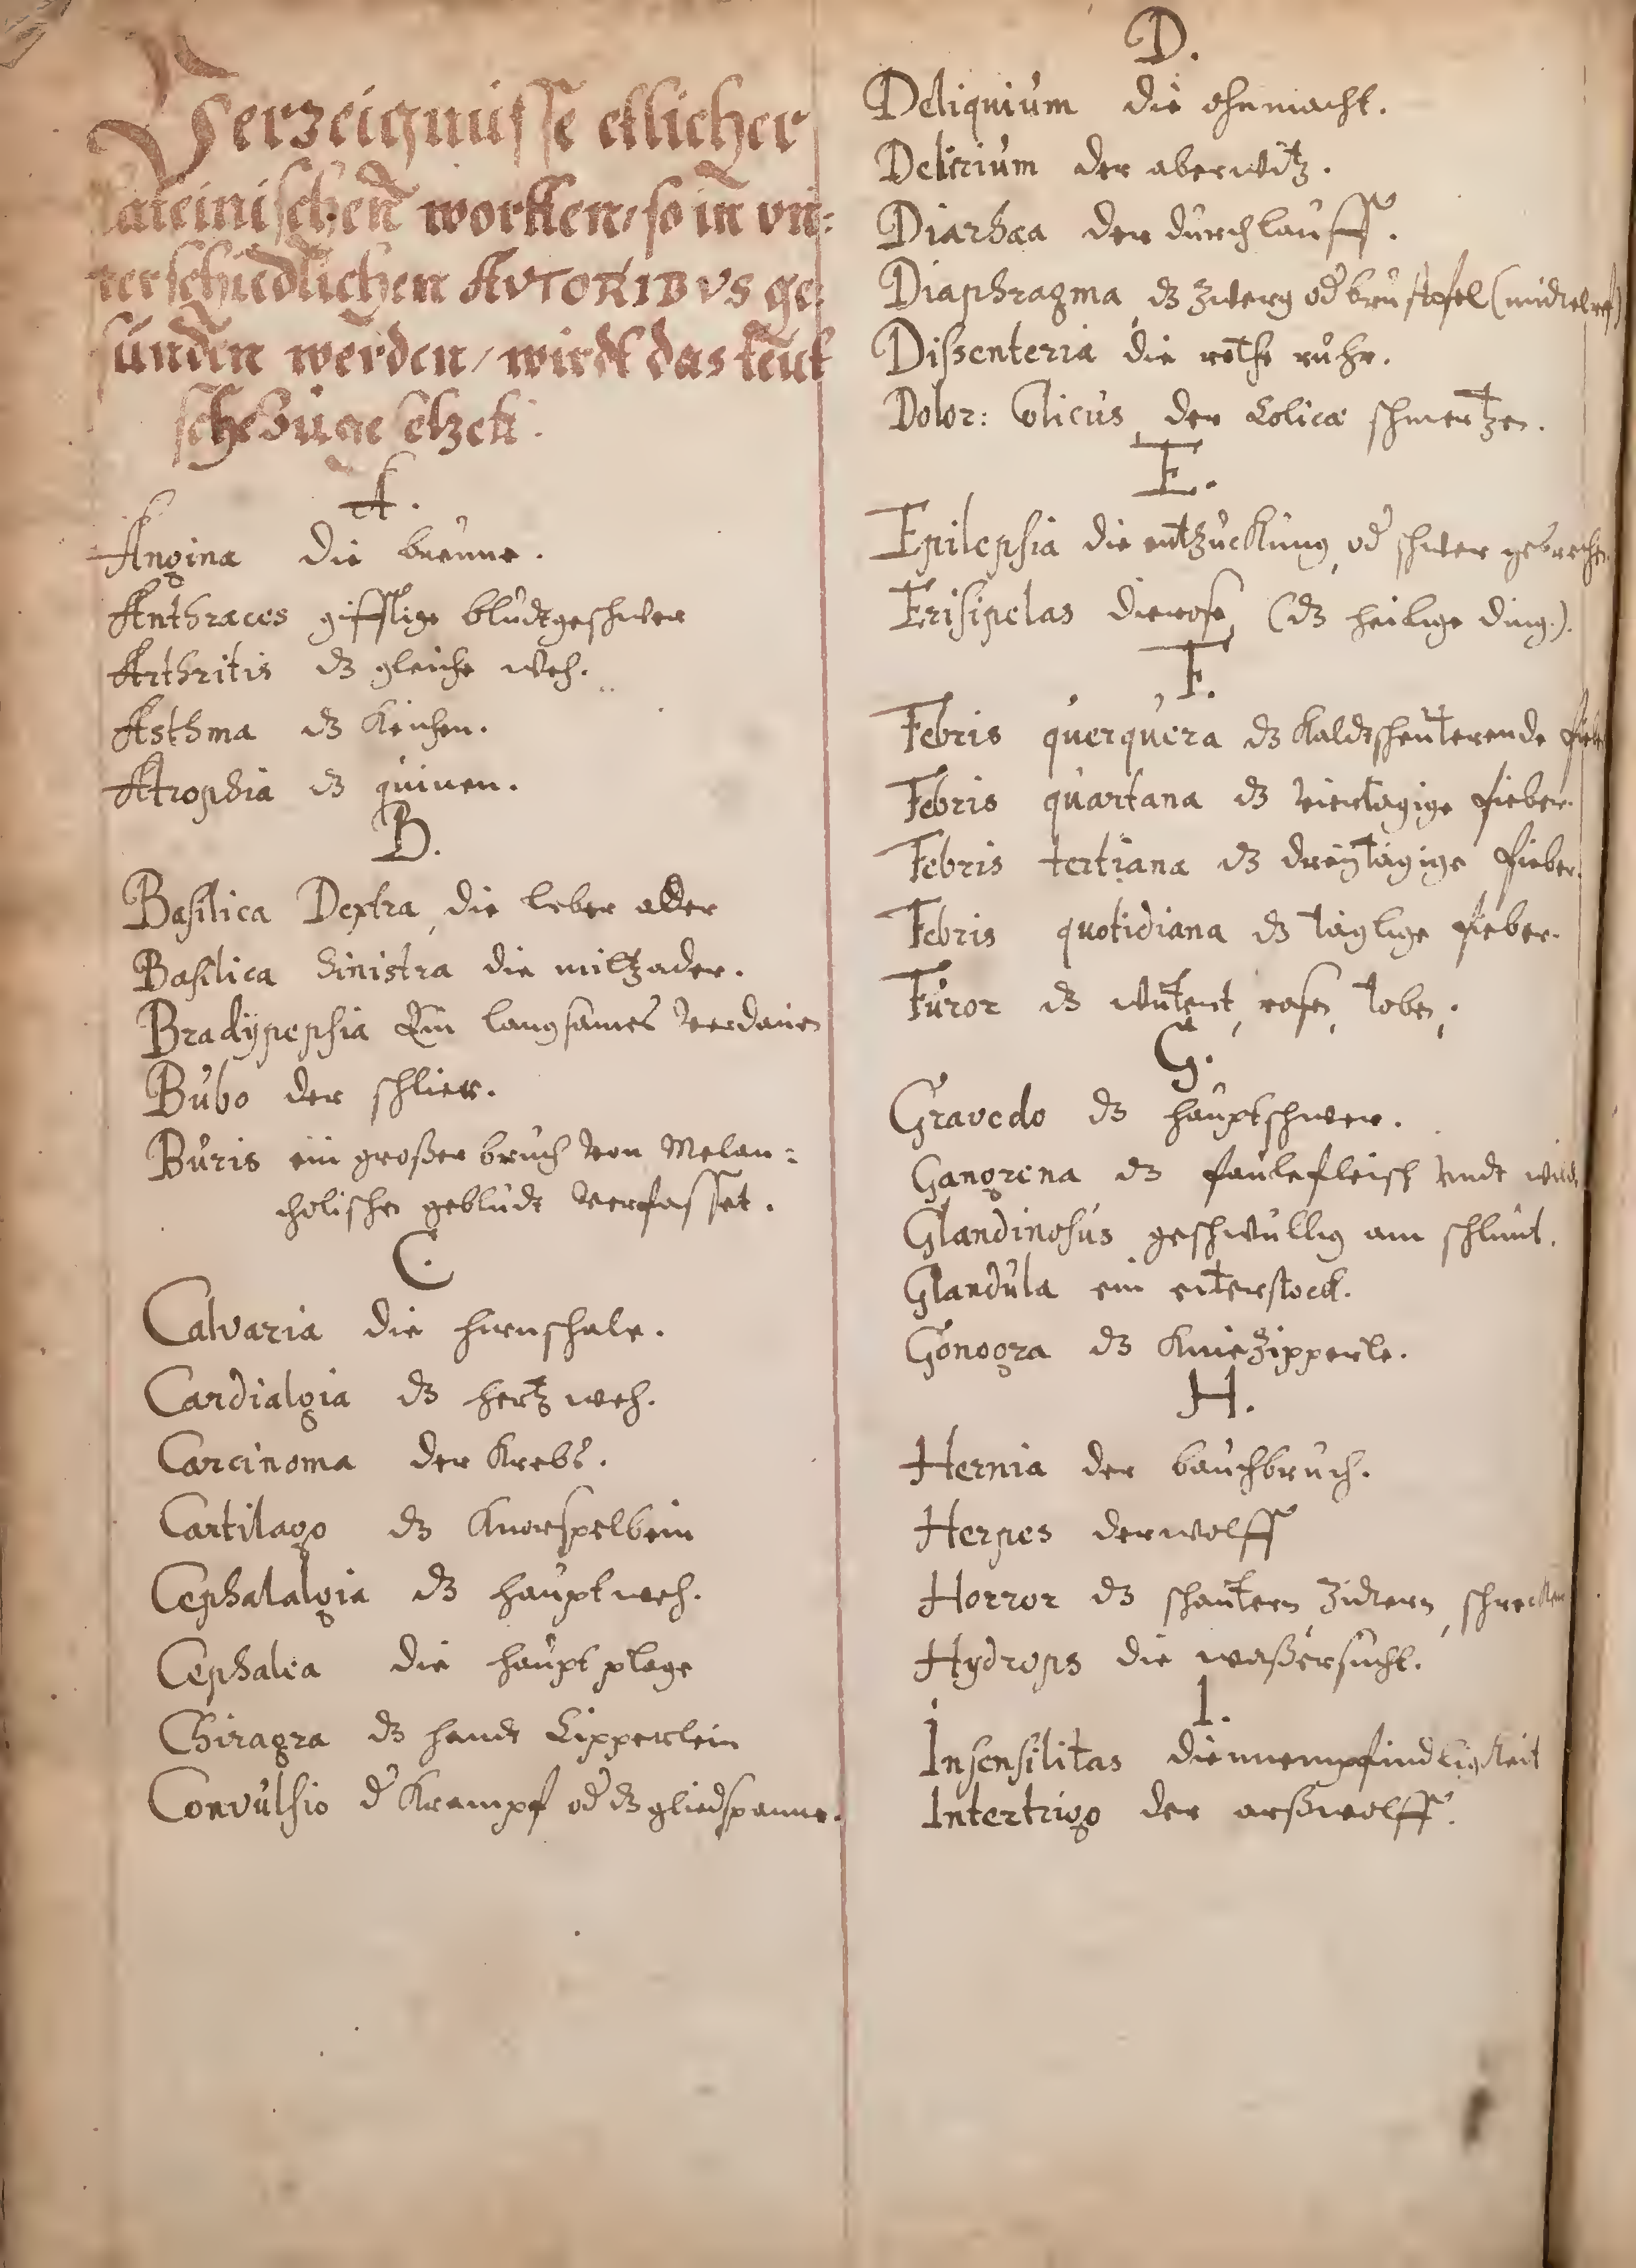 Verzeignüsse etlicher
Lateinischen wortten, so in un:
terschiedlichen AVTORIBVS ge:
funden werden, wirdt das teut
sche
A.
Angina die breune.
Anthraces gifftige bludtgeschwer
Arthritis dz gleiche weh.
Asthma dz Keichen.
Atrophia dz quinen.
B.
Basilica Dextra, die leber ader
Basilica Sinistra die miltzader.
Bradypepsia Ein langsames verdauen
Bubo der schlier.
Buris ein großer bruch von Melan:
cholischen gebludt verfasset.
C.
Calvaria die hirnschale.
Cardialgia dz hertz weh.
Carcinoma der Krebs.
Cartilago dz Knorspelbein
Cephalalgia dz hauptweh.
Cephalea die haupt plage
Chiragra dz handt Zipperlein
Convulsio d' Krampf od' dz gliedspanne.
D.
Deliquium die ohnmacht.
Delirium der aberwitz.
Diarhæa der durchlauff.
Diaphragma, dz zwerg od' brust
Dissenteria die rothe ruhr.
Dolor: Colicus, der Colica schmertzen.
E.
Epilepsia die entzuckung, od' schwer gebrechen
Erisipelas die rose, (dz heilige ding.).
F.
Febris querquera dz Kaldtscheuterende fieber
Febris quartana dz viertagige fieber.
Febris tertiana dz dreytägige fieber.
Febris quotidiana dz täglige fieber.
Furor dz wutent, rasen, toben.
G.
Gravedo dz hauptschwer.
Gangrena dz faulefleisch undt wilde
Glandinosus geschwullig am schlunt.
Glandula ein eiterstock.
Gonogra dz Kniezipperle.
H.
Hernia der bauchbruch.
Herpes der wolff
Horror dz schautern, Zidtern, schrecken
Hydrops die waßersucht.
I.
Insensilitas die unempfindligkeit
Intertrigo der arßwolff.